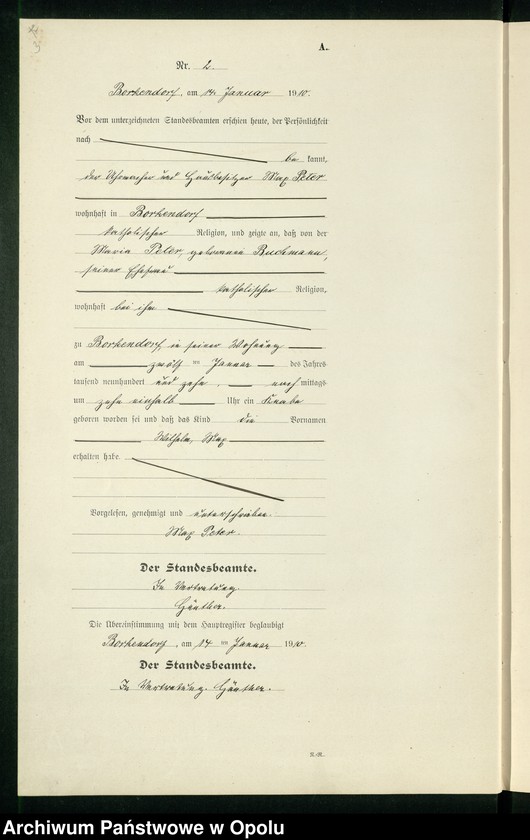 A.
Nr. 2.
Borkendorf, am 14. Januar 1910.
Vor dem unterzeichneten Standesbeamten erschien heute, der Persönlichkeit
nach
be kannt,
der Uhrmacher und Hausbesitzer Max Peter
wohnhaft in Borkendorf
katholischer Religion, und zeigte an, daß von der
Maria Peter, geborenen Buchmann,
seiner Ehefrau
katholischer Religion,
wohnhaft bei ihm
zu Borkendorf, in seiner Wohnung
am zwölften Januar des Jahres
tausend neunhundert und zehn, nach mittags
um zehn einhalb Uhr ein Knabe
geboren worden sei und daß das Kind die Vornamen
Wilhelm, Max
erhalten habe.
Vorgelesen, genehmigt und unterschrieben.
Max Peter.
Der Standesbeamte.
In Vertretung.
Günther.
Die Übereinstimmung mit dem Hauptregister beglaubigt
Borkendorf, am 14 ten Januar 1910.
Der Standesbeamte.
In Vertretung. Günther.
Archiwum Państwowe w Opolu